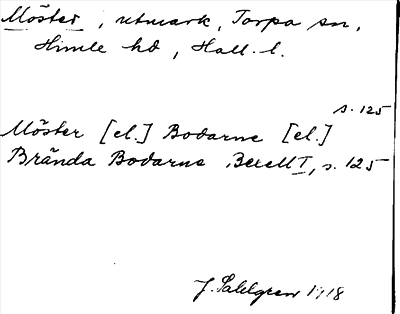 Möster, utmark, Torpa sn,
Himle hd, Hall. l.
s. 125
Möster [el.] Bodarne [el.]
Brända Bodarne BexellI, s. 125
J. Sahlgren 1918